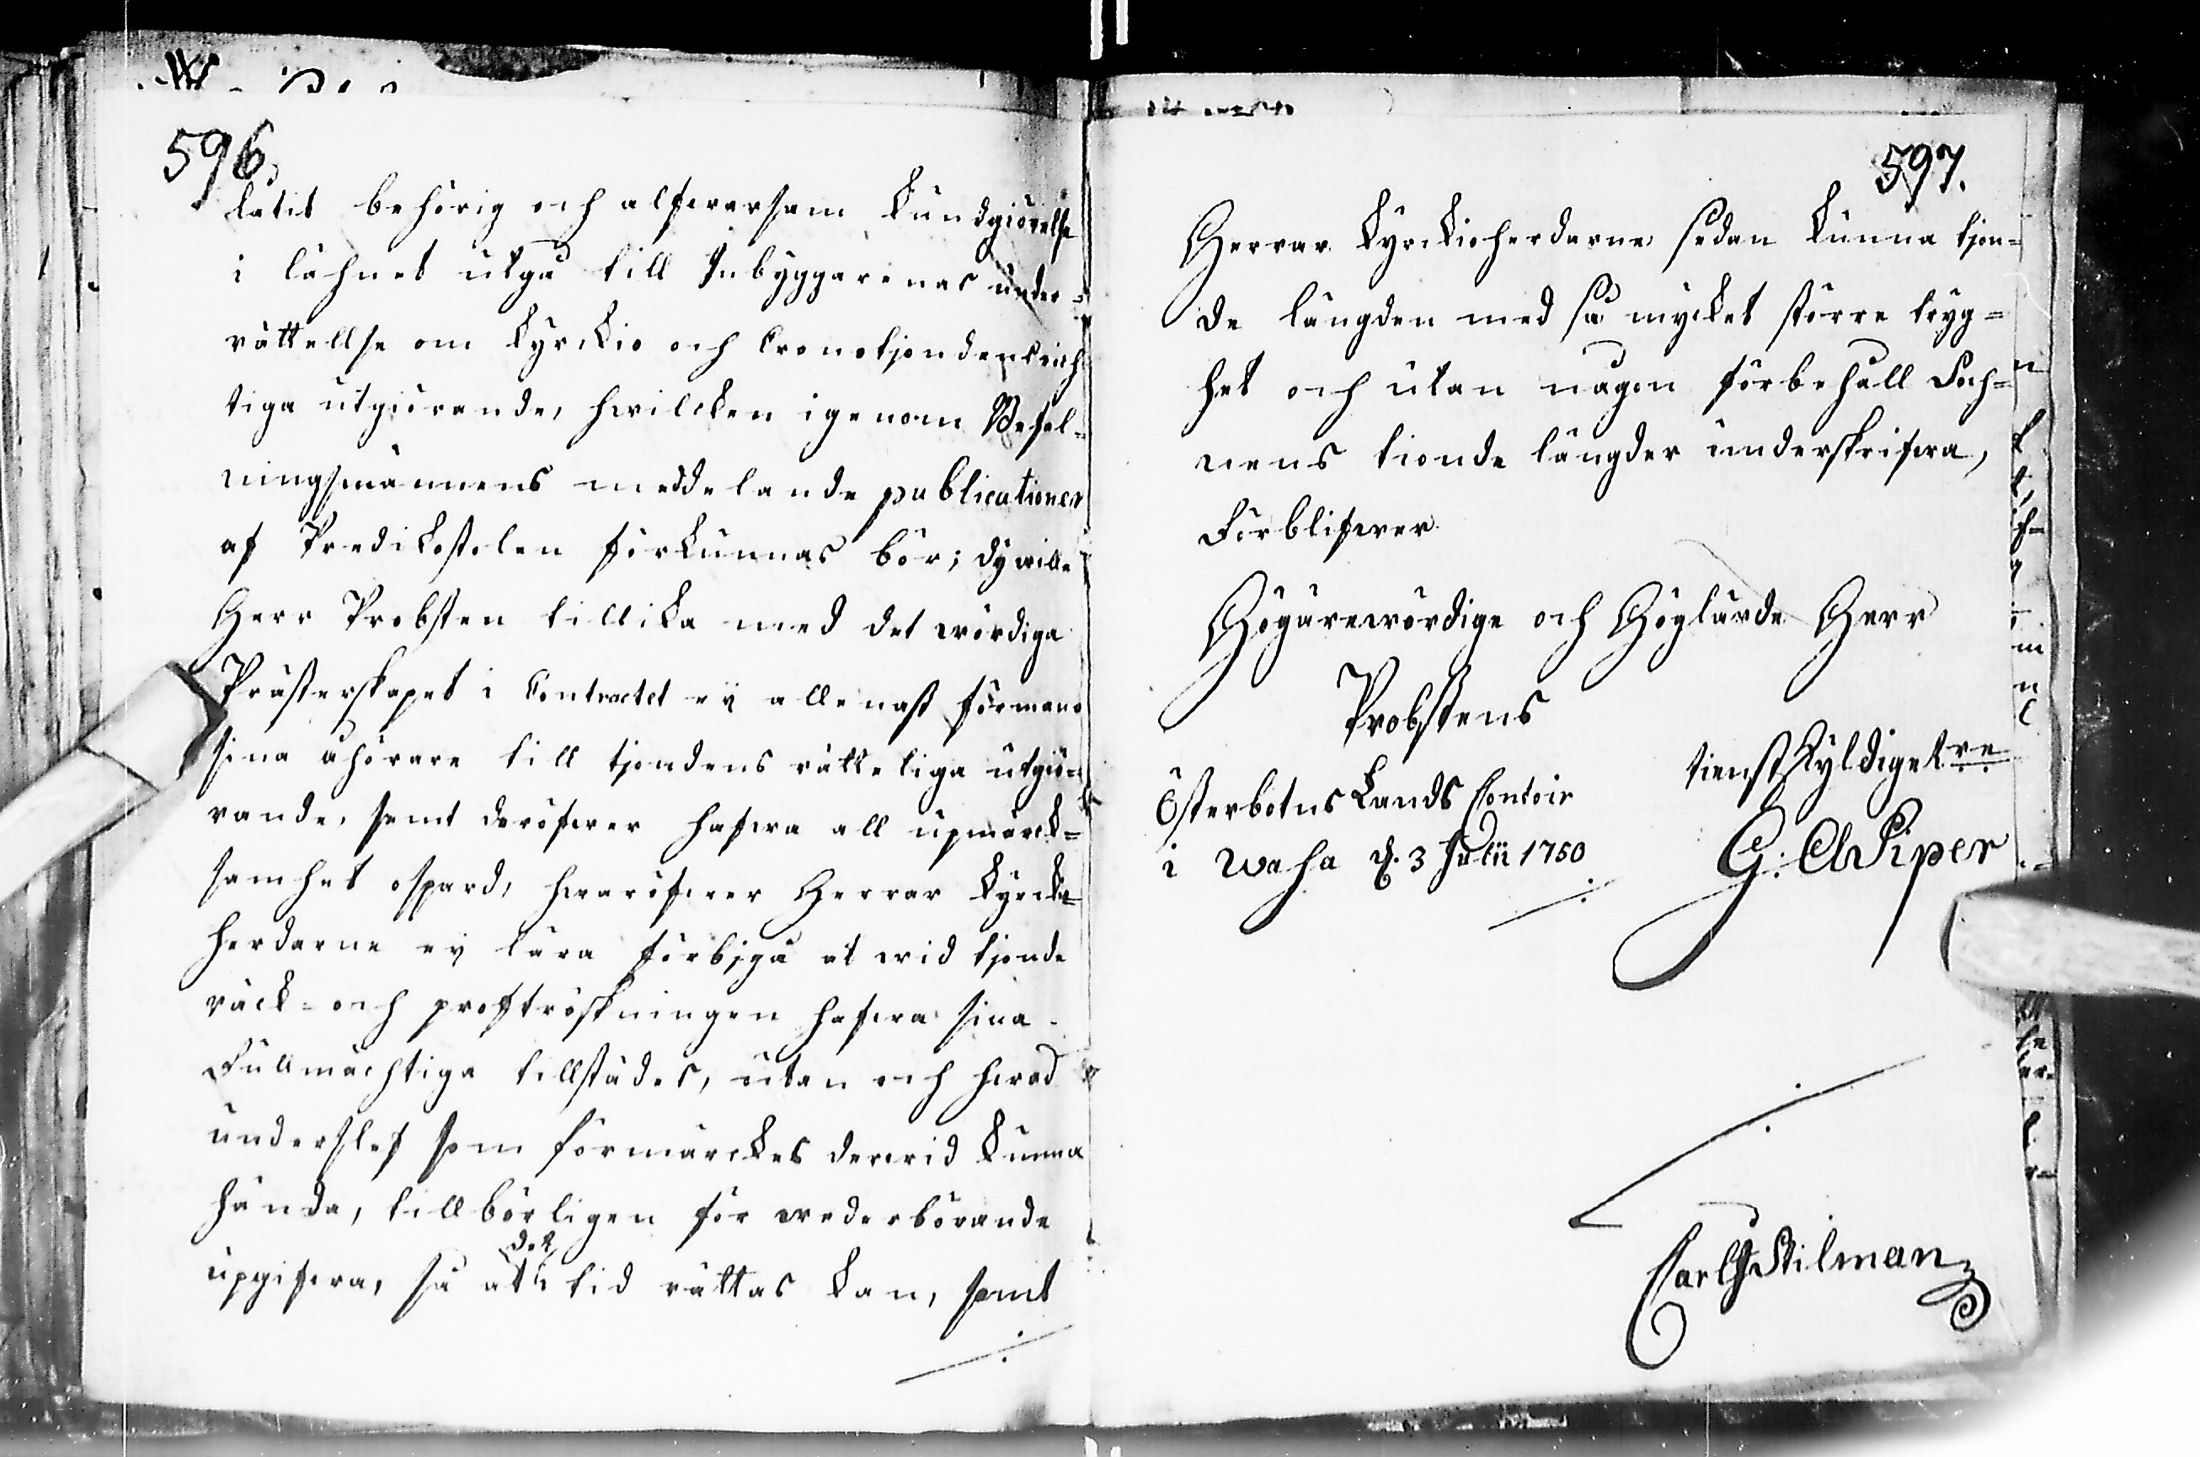 596.
låtit behörig och alfwarsam kundgiörellse
i lähnet utgå till Inbyggarenas under=
rättellse om Kyrckio och Cronotjondens rich
tiga utgiörande, hwilcken igenom Befal=
ningsmännens meddelande publicationer
af Predikostolen förkunnas bör; dy wille
Herr Probsten tillika med det wördiga
Prästerskapet i Contractet ey allenast förmana
sina åhörare till tjondens rätteliga utgiö=
rande, samt deröfwer hafwa all upmärck=
samhet ospard, hwaröfwer Herrar Kyrckio=
herdarne ey lära förbjgå at wid tjonde
räck- och proftröskningen hafwa sina
Fullmächtiga tillstädes, utan och hwad
underslef som förmärckes derwid kunna
hända, tillbörligen för wederbörande
upgifwa, så at det i tid rättas kan, samt
597.
Herrar Kyrckioherdarne sedan kunna tjon=
de längden med så mycket större tryg=
het och utan någon förbehåll Soch=
nens tionde längder underskrifwa,
Förblifwer
Högärewördige och Höglärde Herr
Probstens
tienstskyldigste
Österbotns Lands Contoir
i Wasa d. 3 Julii 1750
G: A Piper
Carl J Stilman